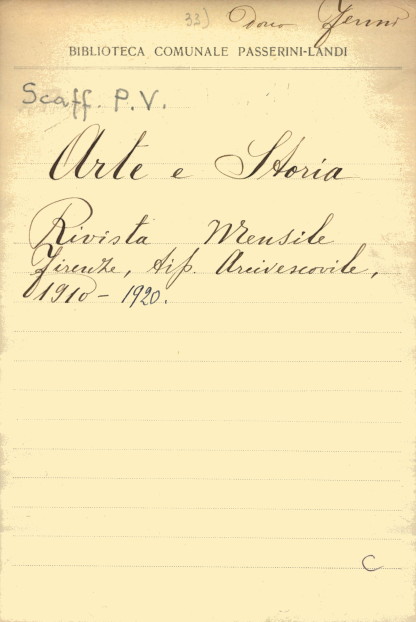 33) Dono Fermi
BIBLIOTECA COMUNALE PASSERINI-LANDI
Scaff. P.V.
Arte e Storia
Rivista Mensile
Firenze, tip. Arcivescovile,
1910-1920.
C